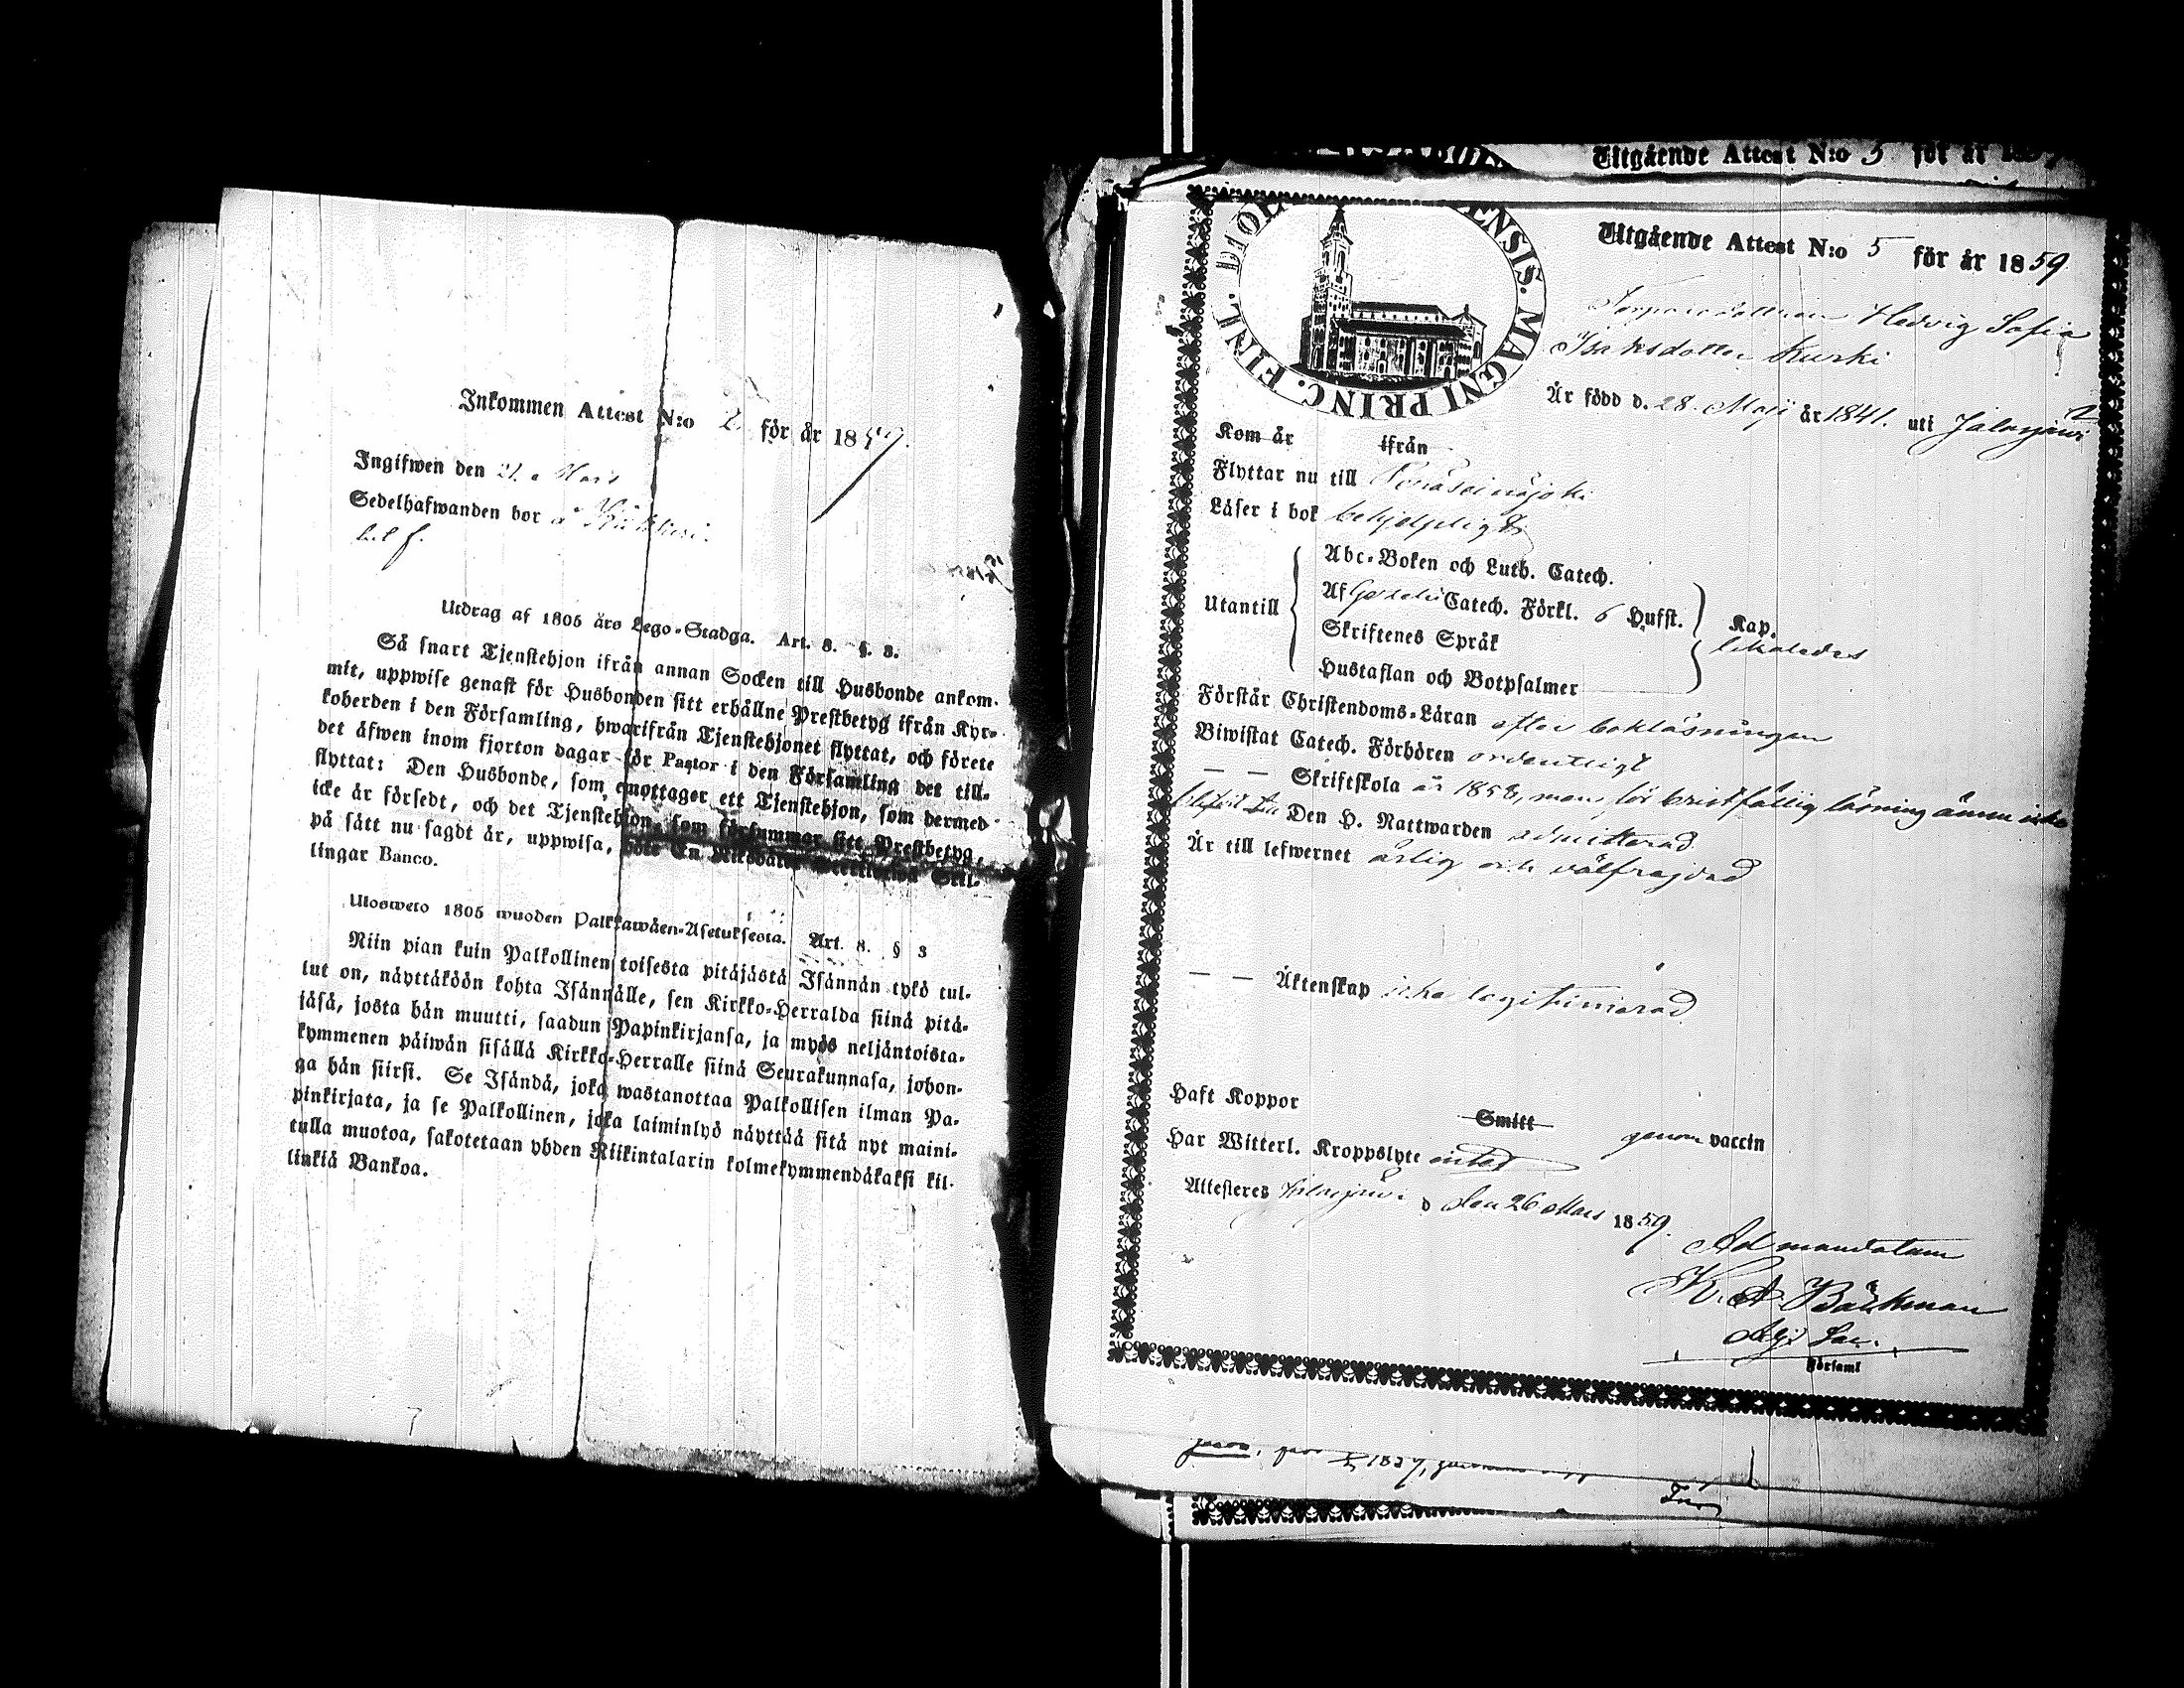 Inkommen Attest N:o 2 för år 1859.
Ingifwen den 21. Mars
Sedelhafwanden bor å
Utdrag af 1805 års Lego-Stadga. Art. 8. §. 3.
Så snart Tjenstehjon ifrån annan Socken till Husbonde ankom-
mit, uppwise genast för Husbonden sitt erhållne Prestbetyg ifrån Kyr-
koherden i den Församling, hwarifrån Tjenstehjonet flyttat, och förete
det äfwen inom fjorton dagar för Pastor i den Församling det till-
flyttat: Den Husbonde, som emottager ett Tjenstehjon, som dermed
icke är försedt, och det Tjenstehjon, som försummar sitt Prestbetyg,
på sätt nu sagdt är, uppwisa, böte En Riksdaler Skil-
lingar Banco.
Ulosweto 1805 wuoden Palkkawäen-Asetuksesta. Art. 8. § 3
Niin pian kuin Palkollinen toisesta pitäjästä Isännän tykö tul-
lut on, näyttäköön kohta Isännälle, sen Kirkko-Herralda siinä pitä-
jäsä, josta hän muutti, saadun Papinkirjansa, ja myös neljäntoista-
kymmenen päiwän sisällä Kirkko-Herralle siinä Seurakunnasa, johon-
ga hän siirsi. Se Isändä, joka wastanottaa Palkollisen ilman Pa-
pinkirjata, ja se Palkollinen, joka laiminlyö näyttää sitä nyt maini-
tulla muotoa, sakotetaan yhden Riikintalarin kolmekymmendäkaksi kil-
linkiä Bankoa.
Utgående Attest N:o 5 för år
ENSIS. MAGNI PRINC. FINL.
Utgående Attest N:o 5 för år 1859
Torparedottren Hedvig Sofia
Isaksdotter Kurki
Är född d. 28. Maji år 1841. uti Jalasjärvi
Kom år ifrån
Flyttar nu till Peräseinäjoki
Läser i bok behjelpligt
Utantill
Abc-Boken och Luth. Catech.
Af Gezelii Catech. Förkl. 6 Hufst. Kap.
Skriftenes Språk
Hustaflan och Botpsalmer
Förstår Christendoms-Läran efter bokläsningen
Biwistat Catech. Förhören ordentligt
— — Skriftskola år 1858, men för bristfällig läsning ännu icke
Den H. Nattwarden admitterad
Är till lefwernet ärlig och välfrejdad
— — Äktenskap icke legitimerad
Haft Koppor Smitt genom vaccin
Har Witterl. Kroppslyte intet
Attesteres Jalasjärvi d den 26 Mars 1859.
Ad mandatum
K. A. Bäckman
Adj. Sac.
Församl